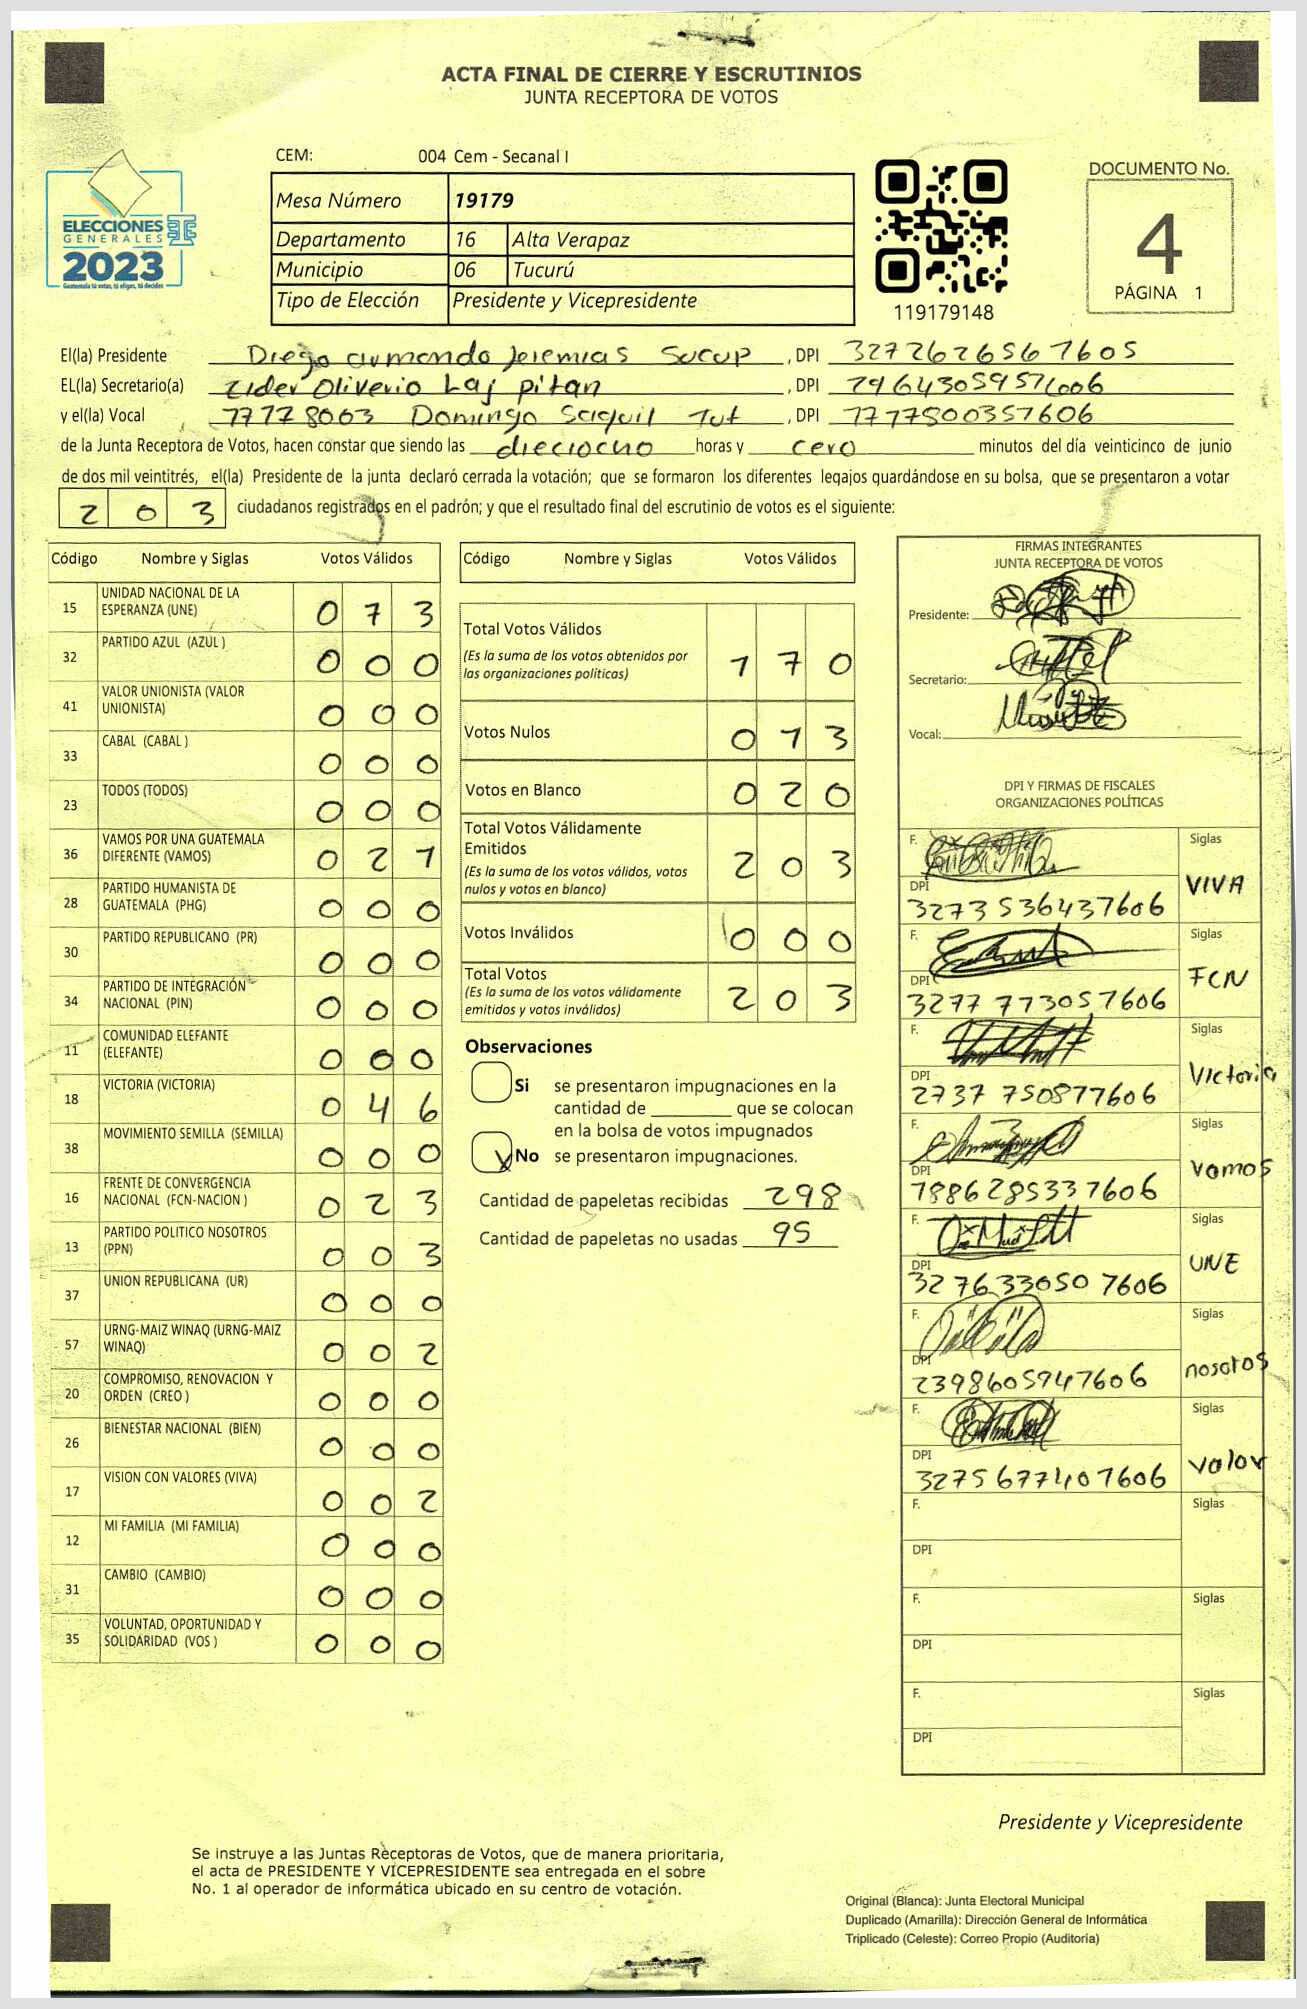 ACTA FINAL DE CIERRE Y ESCRUTINIOS
JUNTA RECEPTORA DE VOTOS
CEM: 004 Cem - Secanal I
ELECCIONES
GENERALES
2023
Guatemala tú votas, tú eliges, tú decides
Mesa Número 19179
Departamento 16 Alta Verapaz
Municipio 06 Tucurú
Tipo de Elección Presidente y Vicepresidente
119179148
DOCUMENTO No.
4
PÁGINA 1
El(la) Presidente Diego armando Jeremias Sucup, DPI 3272626567605
EL(la) Secretario(a) Lider Oliverio Laj pitan, DPI
y el(la) Vocal 77778003 Domingo Saquil Tut, DPI 7777800357606
de la Junta Receptora de Votos, hacen constar que siendo las dieciocho horas y cero minutos del día veinticinco de junio
de dos mil veintitrés, el(la) Presidente de la junta declaró cerrada la votación; que se formaron los diferentes legajos guardándose en su bolsa, que se presentaron a votar
203 ciudadanos registrados en el padrón; y que el resultado final del escrutinio de votos es el siguiente:
Código Nombre y Siglas Votos Válidos
15 UNIDAD NACIONAL DE LA ESPERANZA (UNE) 073
32 PARTIDO AZUL (AZUL ) 000
41 VALOR UNIONISTA (VALOR UNIONISTA) 000
33 CABAL (CABAL ) 000
23 TODOS (TODOS) 000
36 VAMOS POR UNA GUATEMALA DIFERENTE (VAMOS) 021
28 PARTIDO HUMANISTA DE GUATEMALA (PHG) 000
30 PARTIDO REPUBLICANO (PR) 000
34 PARTIDO DE INTEGRACIÓN NACIONAL (PIN) 000
11 COMUNIDAD ELEFANTE (ELEFANTE) 000
18 VICTORIA (VICTORIA) 046
38 MOVIMIENTO SEMILLA (SEMILLA) 000
16 FRENTE DE CONVERGENCIA NACIONAL (FCN-NACION ) 023
13 PARTIDO POLITICO NOSOTROS (PPN) 003
37 UNION REPUBLICANA (UR) 000
57 URNG-MAIZ WINAQ (URNG-MAIZ WINAQ) 002
20 COMPROMISO, RENOVACION Y ORDEN (CREO ) 000
26 BIENESTAR NACIONAL (BIEN) 000
17 VISION CON VALORES (VIVA) 002
12 MI FAMILIA (MI FAMILIA) 000
31 CAMBIO (CAMBIO) 000
35 VOLUNTAD, OPORTUNIDAD Y SOLIDARIDAD (VOS ) 000
Código Nombre y Siglas Votos Válidos
Total Votos Válidos
(Es la suma de los votos obtenidos por las organizaciones políticas) 170
Votos Nulos 013
Votos en Blanco 020
Total Votos Válidamente Emitidos
(Es la suma de los votos válidos, votos nulos y votos en blanco) 203
Votos Inválidos 000
Total Votos
(Es la suma de los votos válidamente emitidos y votos inválidos) 203
Observaciones
Si se presentaron impugnaciones en la
cantidad de ________ que se colocan
en la bolsa de votos impugnados
X No se presentaron impugnaciones.
Cantidad de papeletas recibidas 298
Cantidad de papeletas no usadas 95
FIRMAS INTEGRANTES
JUNTA RECEPTORA DE VOTOS
Presidente:
Secretario:
Vocal:
DPI Y FIRMAS DE FISCALES
ORGANIZACIONES POLÍTICAS
F. Siglas
DPI 3273536437606 VIVA
F. Siglas
DPI 3277773057606 FCN
F. Siglas
DPI 2737750877606 Victoria
F. Siglas
DPI 7886285337606 Vamos
F. Siglas
DPI 3276330507606 UNE
F. Siglas
DPI 2398605947606 nosotos
F. Siglas
DPI 3275677407606 valor
F. Siglas
DPI
F. Siglas
DPI
F. Siglas
DPI
Presidente y Vicepresidente
Se instruye a las Juntas Receptoras de Votos, que de manera prioritaria,
el acta de PRESIDENTE Y VICEPRESIDENTE sea entregada en el sobre
No. 1 al operador de informática ubicado en su centro de votación.
Original (Blanca): Junta Electoral Municipal
Duplicado (Amarilla): Dirección General de Informática
Triplicado (Celeste): Correo Propio (Auditoría)